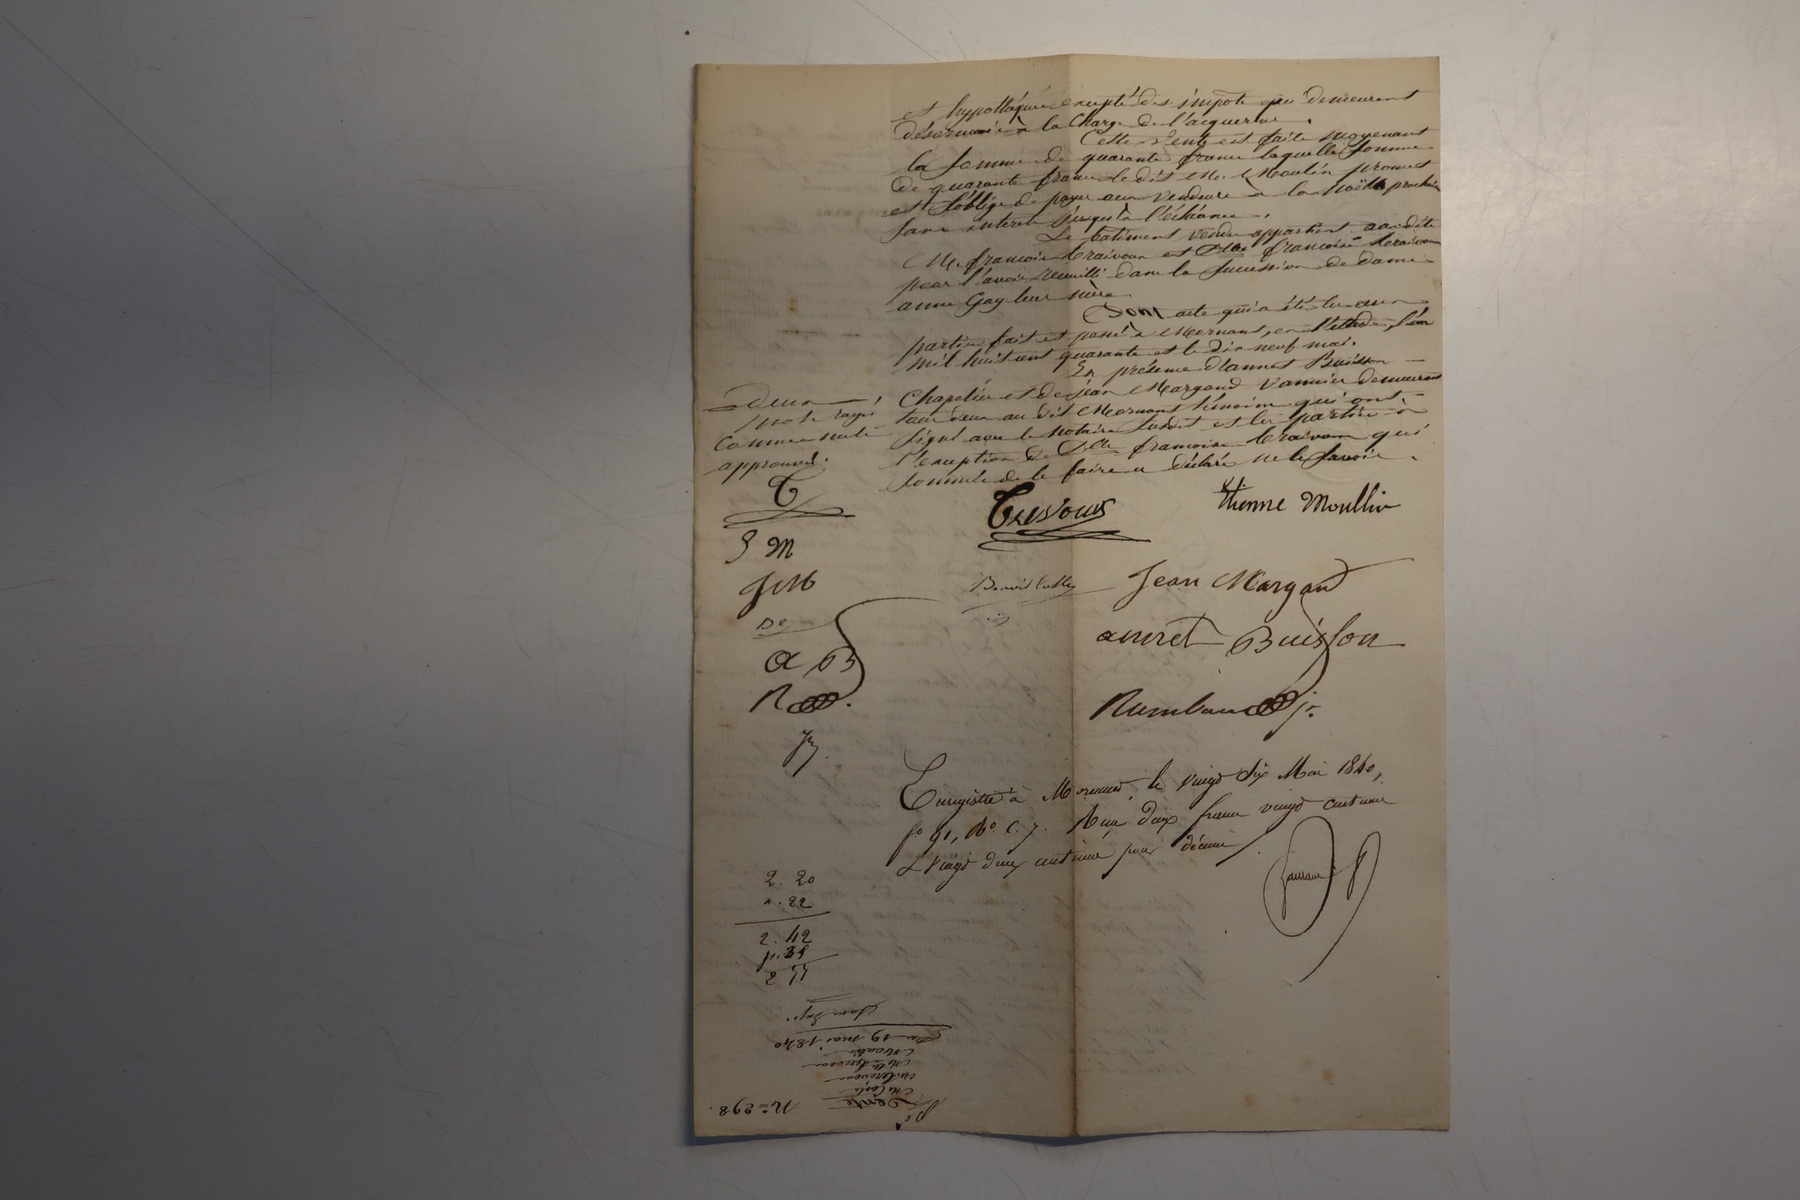 et hypothéqué excepté des impots qui demeurent
désormais à la Charge de l'acquereur.
Cette Vente est faite moyenant
la Somme de quarante francs laquelle Somme
de quarante francs le dit Mr. Moulin promet
et S'oblige de payer aux Vendeurs à la Noël prochain
Sans interet jusqu'à l'échéance.
Le batiment vendu appartient au dit
Mr. francois et Dlle francoise
pour l'avoir receuilli dans la Sucession de dame
anne Gay leur mère.
Dont acte qui a été lu aux
parties fait et passé à Mornant, en l'étude, l'an
mil huit cent quarante et le dix neuf mai.
En présence d'annet Buisson
Chapelier et de jean Margand Vannier demeurant
tous deux au dit Mornant témoins qui ont
Signé avec le Notaire Susdit et les parties à
l'exception de Dlle francoise qui
Sommée de le faire a déclaré ne le Savoir.
deux
mots rayés
comme nuls
approuvés.
T
E M
J M
A B
R
Etienne Moullin
Jean Margand
annet Buisson
jr.
Enregistré à Mornant, le vingt Six Mai 1840,
fo 91, Ro C. 7. Reçu deux francs vingt centimes
& vingt deux centimes pour décime.
2. 20
". 22
2. 42
Du 19 mai 1840
Vente
No 298.